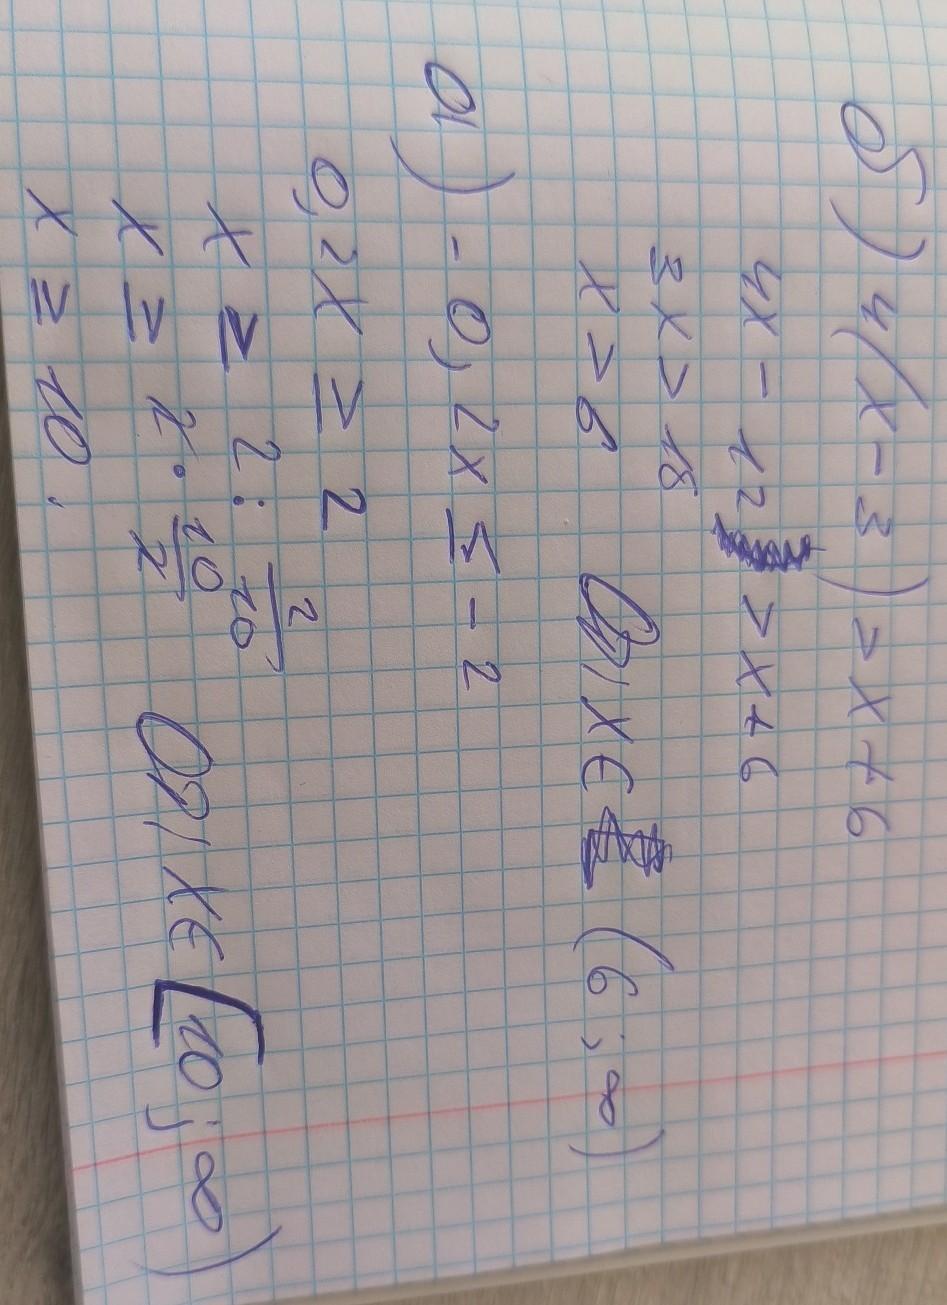 б) 4(x-3) > x+6
4x - 12 > x+6
3x > 18
x > 6 От/ x ∈ (6; ∞)
а) -0,2x ≤ -2
0,2x ≥ 2
x ≥ 2 : 2/10
x ≥ 2 · 10/2
x ≥ 10. От/ x ∈ [10; ∞)